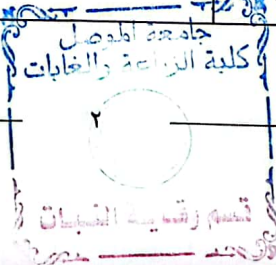 جامعة الموصل
كلية الزراعة والغابات
٢
قسم وقاية النبات